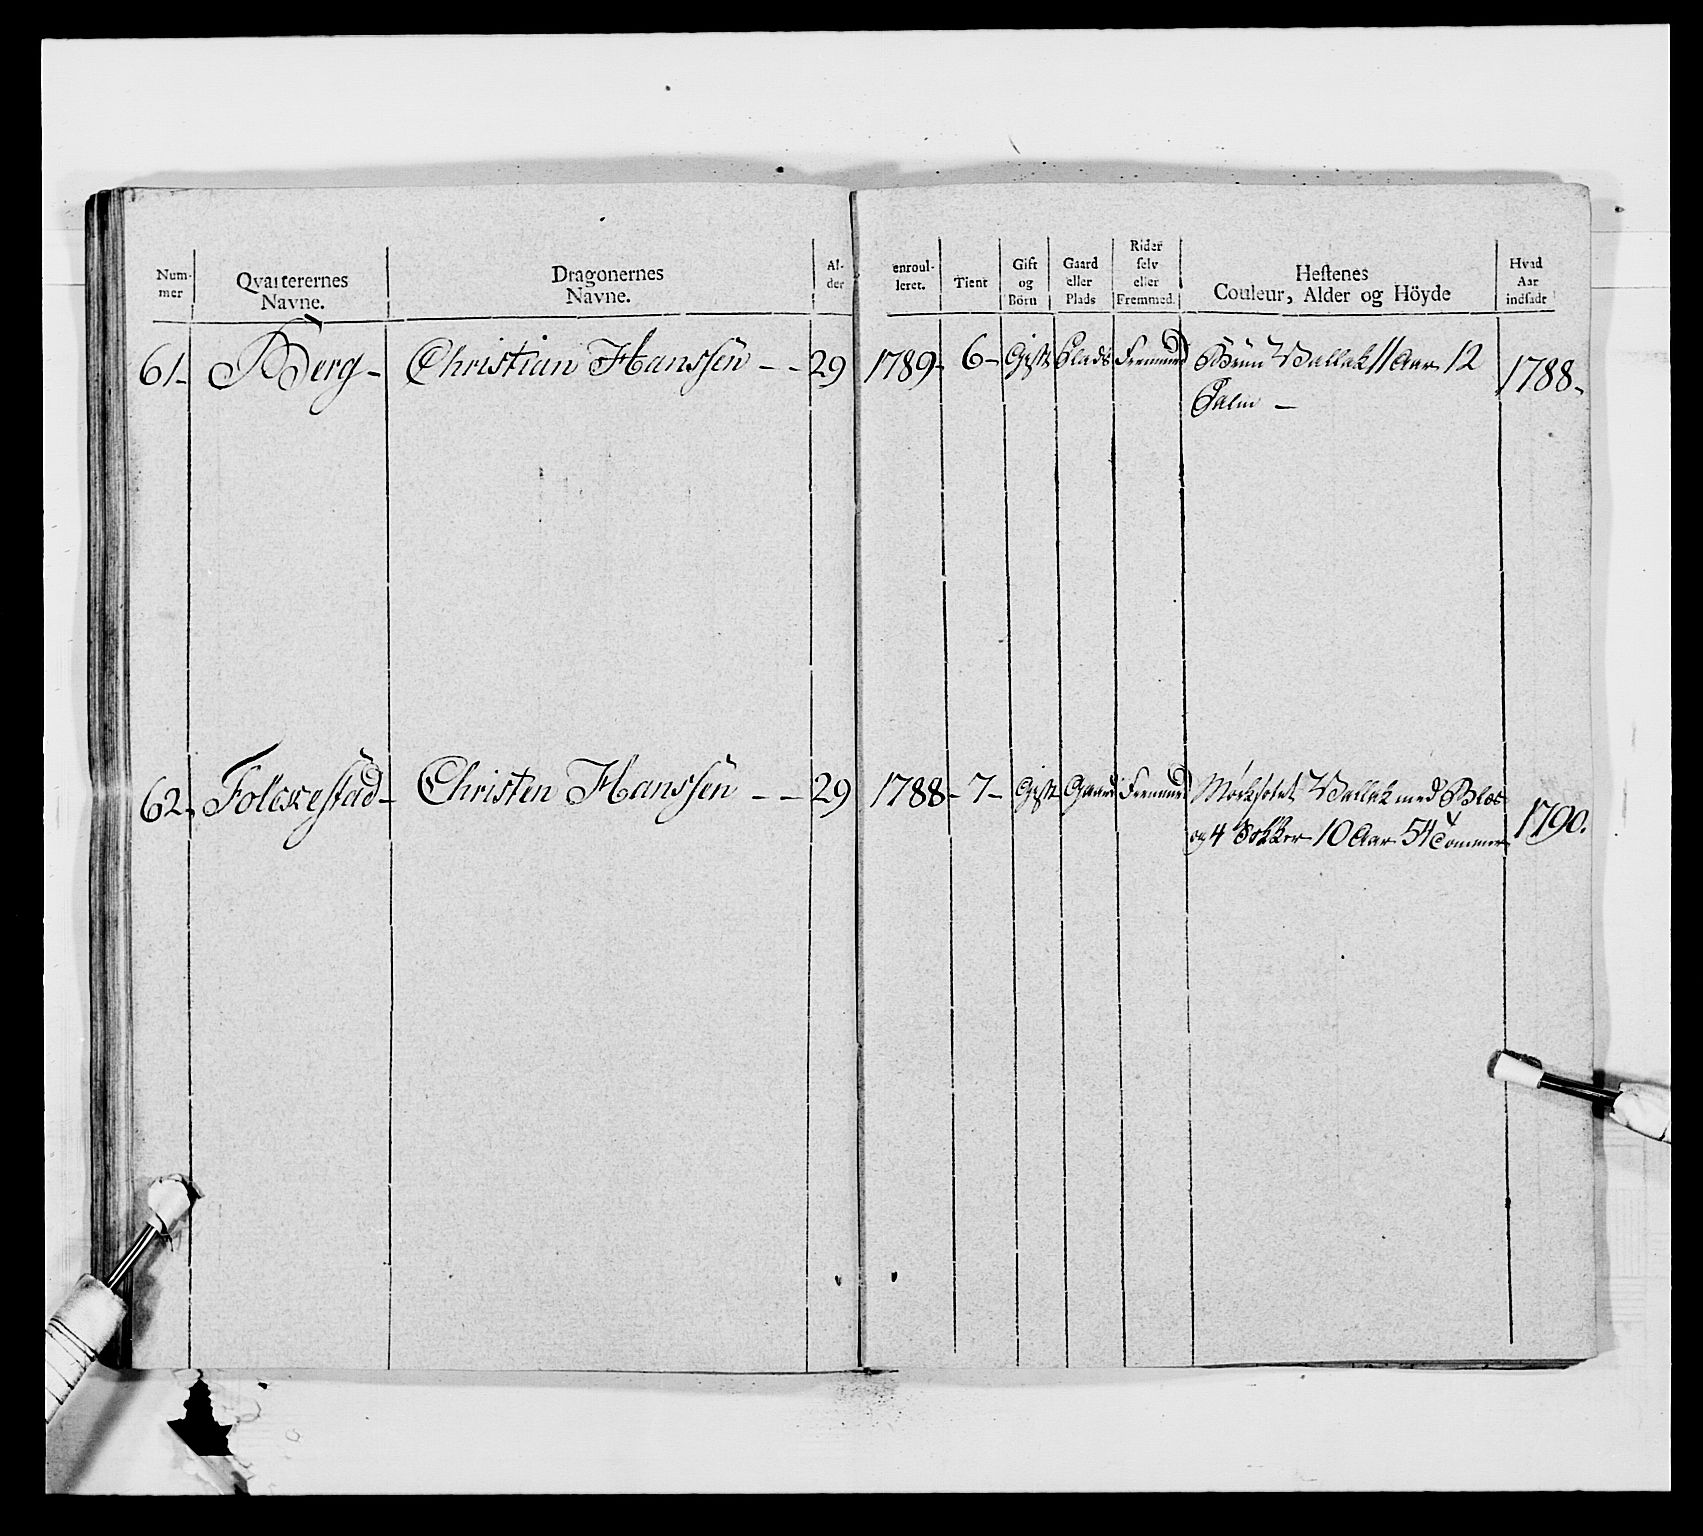 Num-
mer
Qvarterernes
Navne.
Dragonernes
Navne.
Al-
der
enroul-
leret.
Tient
Gift
og
Börn
Gaard
eller
Plads
Rider
selv
eller
Fremmed.
Hestenes
Couleur, Alder og Höyde
Hvad
Aar
indsadt
61- Berg- Christian Hanssen - - 29 1789- 6- Gift Plads Fremmed Bruun Vallak 11 Aar 12 1788-
Palm -
62- Folckestad- Christen Hanssen - - 29 1788- 7- Gift Gaard Fremmed Vallak med Blis 1790.
og 4 Sokker 10 Aar 54 Tommer